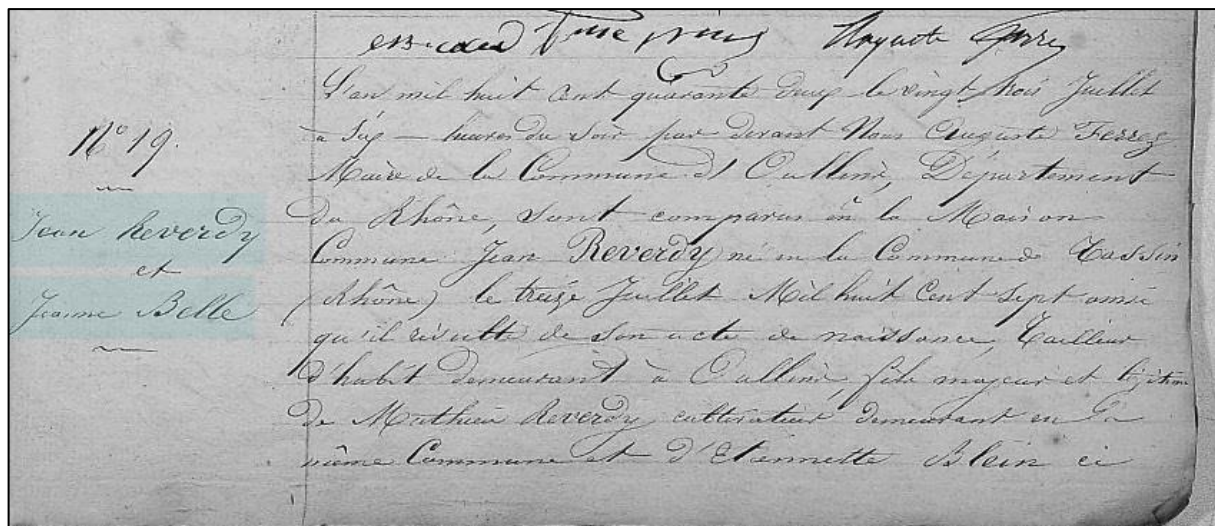 Auguste Ferrez
L'an mil huit Cent quarante deux le vingt trois Juillet
à Six — heures du Soir par devant Nous Auguste Ferrez
Maire de la Commune d'Oullins, Département
du Rhône, Sont comparus en la Maison
Commune Jean Reverdy né en la Commune de Tassin
(Rhône) le treize Juillet Mil huit Cent Sept ainsi
qu'il résulte de Son acte de naissance, Tailleur
d'habit demeurant à Oullins, fils majeur et légitime
de Mathieu Reverdy cultivateur demeurant en la
même Commune et d'Etiennette Blein ci
N° 19.
Jean Reverdy
et
Jeanne Belle